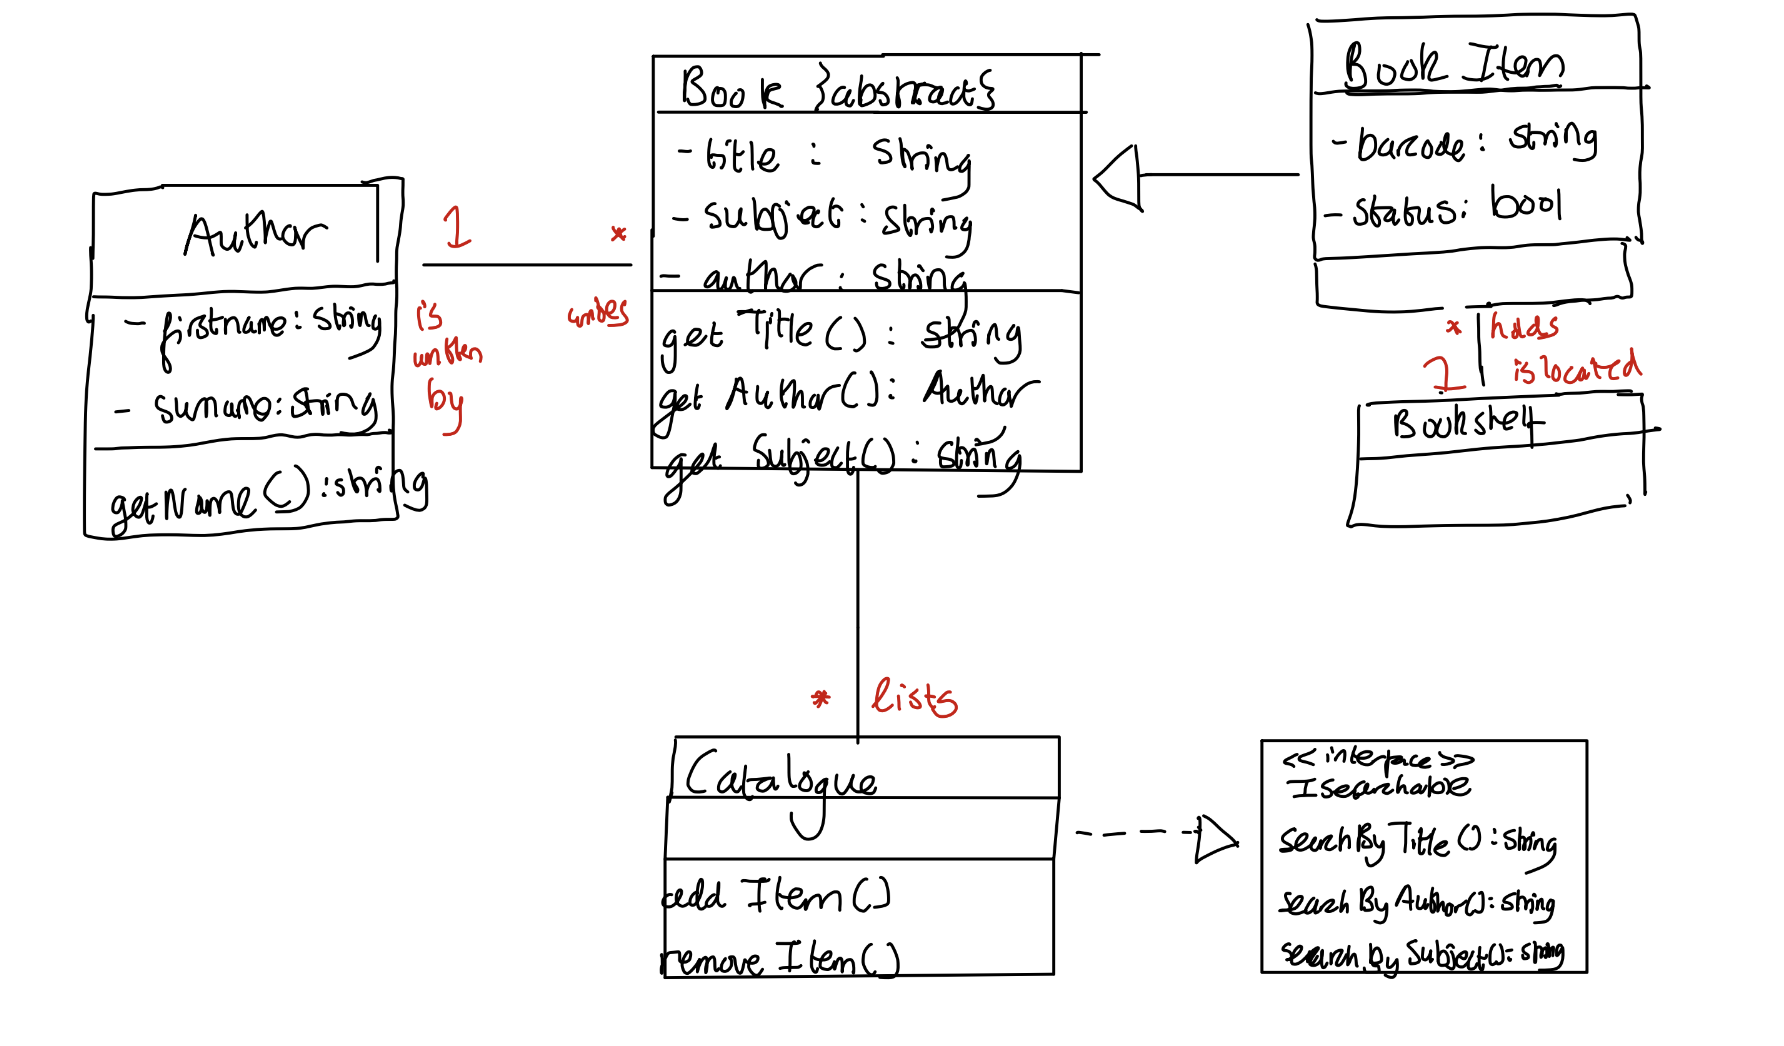 Author
- firstname: String
- surname: String
getName(): string
1
is
written
by
*
writes
Book }abstract{
- title : String
- subject : String
- author : String
getTitle() : String
getAuthor(): Author
getSubject() : String
Book Item
- barcode: String
- status: bool
* holds
1 is located
Bookshelf
* lists
Catalogue
add Item()
remove Item()
<<interface>>
ISearchable
searchByTitle(): String
searchByAuthor(): String
searchBySubject(): String